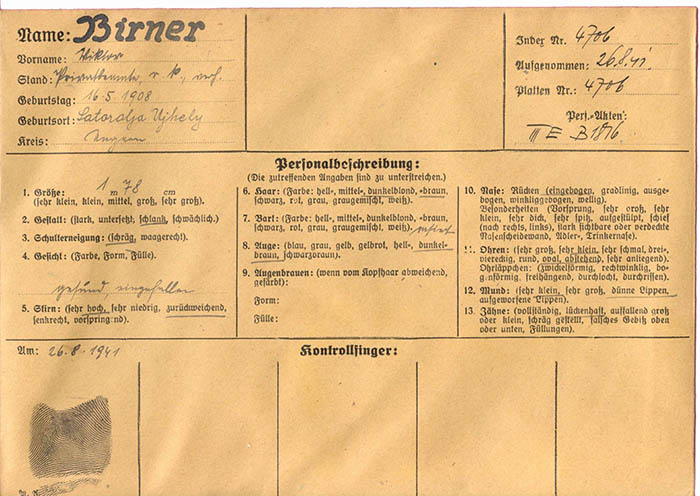 Name: Birner
Vorname: Viktor
Stand: Privatbeamte, r. k., verh.
Geburtstag: 16.5.1908
Geburtsort: Satoralja Ujhely
Kreis: Ungarn
Index Nr. 4706
Aufgenommen: 26.8.41.
Platten Nr. 4706
Pers.-Akten:
III E B1876
Personalbeschreibung:
(Die zutreffenden Angaben sind zu unterstreichen.)
1. Größe: 1 m 78 cm
(sehr klein, klein, mittel, groß, sehr groß).
2. Gestalt: (stark, untersetzt, schlank, schwächlich).
3. Schulterneigung: (schräg, waagerecht).
4. Gesicht: (Farbe, Form, Fülle).
gesund, eingefallen
5. Stirn: (sehr hoch, sehr niedrig, zurückweichend,
senkrecht, vorspring:nd).
6. Haar: (Farbe: hell-, mittel-, dunkelblond, -braun,
schwarz, rot, grau, graugemischt, weiß).
7. Bart: (Farbe: hell-, mittel-, dunkelblond, -braun,
schwarz, rot, grau, graugemischt, weiß).
8. Auge: (blau, grau, gelb, gelbrot, hell-, dunkel-
braun, schwarzbraun).
9. Augenbrauen: (wenn vom Kopfhaar abweichend,
gefärbt):
Form:
Fülle:
10. Nase: Rücken (eingebogen, gradlinig, ausge-
bogen, winkliggebogen, wellig).
Besonderheiten (Vorsprung, sehr groß, sehr
klein, sehr dick, sehr spitz, aufgestülpt, schief
(nach rechts, links), stark sichtbare oder verdeckte
Nasenscheidewand, Adler-, Trinkernase).
11. Ohren: (sehr groß, sehr klein, sehr schmal, drei-,
viereckig, rund, oval, abstehend, sehr anliegend).
Ohrläppchen: (zwickelförmig, rechtwinklig, bo-
g:nförmig, freihängend, durchlocht, durchrissen).
12. Mund: (sehr klein, sehr groß, dünne Lippen,
aufgeworfene Lippen).
13. Zähne: (vollständig, lückenhaft, auffallend groß
oder klein, schräg gestellt, falsches Gebiß oben
oder unten, Füllungen).
Am: 26.8.1941
Kontrollfinger: